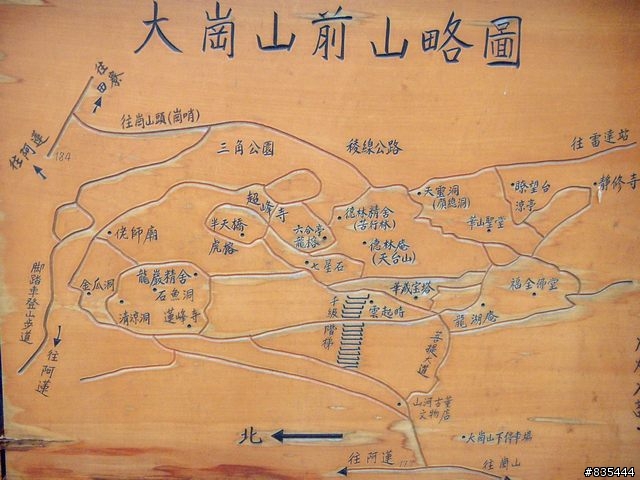 大崗山前山略圖
往田寮
往阿蓮
184
往崗山頭(崗哨)
三角公園
稜線公路
往雷達站
超峰寺
天聖洞
(頂總洞)
瞭望台
涼亭
靜修寺
半天橋
虎榕
六合亭
龍榕
德林精舍
(苦行林)
華山聖堂
德林庵
(天台山)
先師廟
七星石
龍巖精舍
石魚洞
金瓜洞
清涼洞
蓮峰寺
華成宝塔
福全佛堂
千級階梯
雲起時
龍湖庵
菩提大道
腳踏車登山步道
往阿蓮
山河古董
文物店
北
大崗山下停車場
往阿蓮
往崗山
#835444